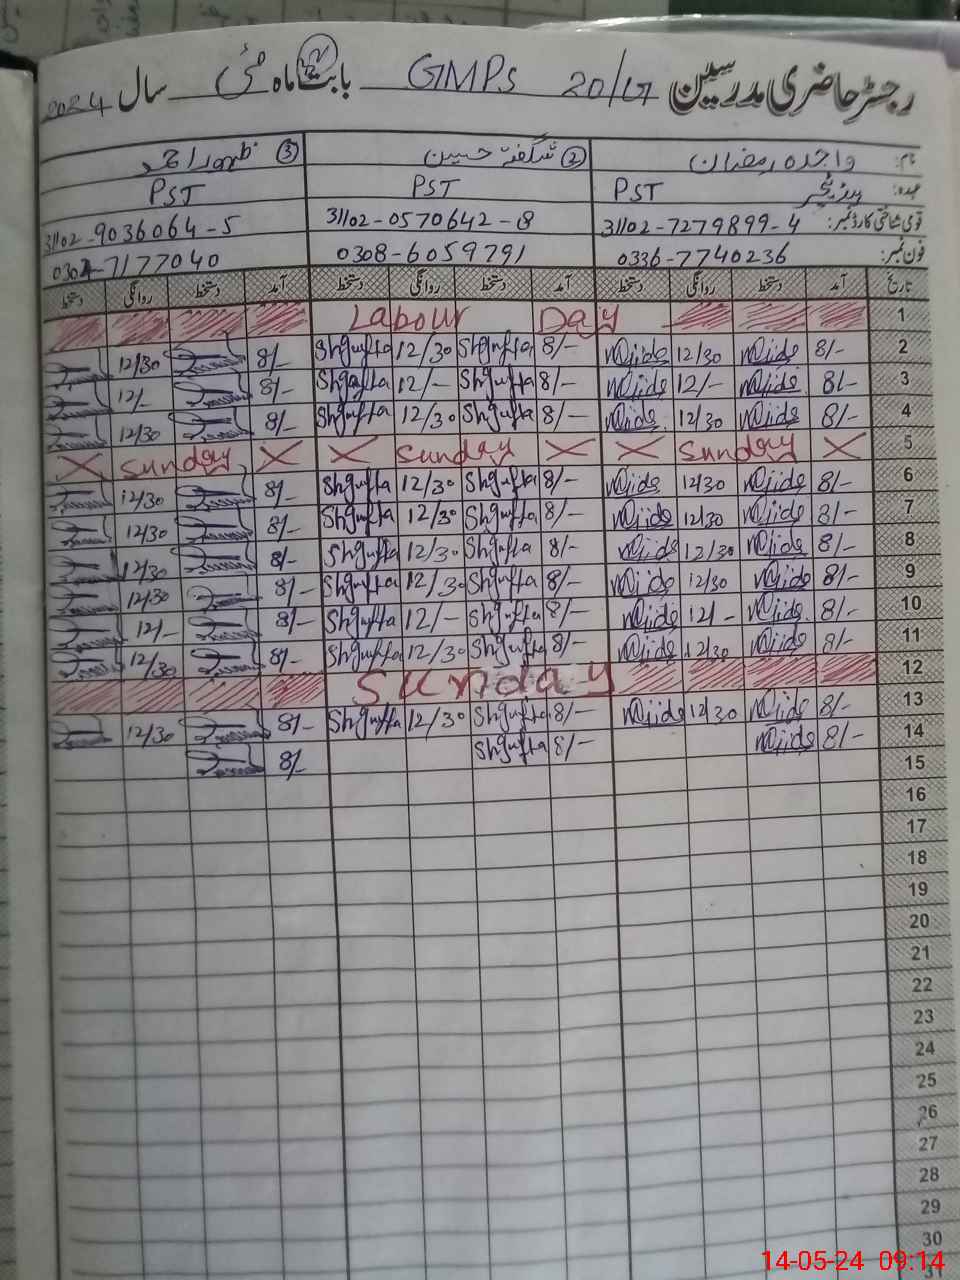 رجسٹر حاضری مدرسین 20/G GMPS بابت ماہ مئی سال 2024
نام: واجدہ رمضان ② شگفتہ حسین ③ ظہور احمد
عہدہ: ہیڈ ٹیچر PST PST PST
قومی شناختی کارڈ نمبر: 31102-7279899-4 31102-0570642-8 31102-9036064-5
فون نمبر: 0336-7740236 0308-6059791 0302-7177040
تاریخ آمد دستخط روانگی دستخط آمد دستخط روانگی دستخط آمد دستخط روانگی دستخط
1 Labour Day
2 8/- 12/30 8/- Shgufta 12/30 Shgufta 8/- 12/30
3 8/- 12/- 8/- Shgufta 12/- Shgufta 8/- 12/-
4 8/- 12/30 8/- Shgufta 12/30 Shgufta 8/- 12/30
5 X Sunday X X Sunday X X Sunday X
6 8/- 12/30 8/- Shgufta 12/30 Shgufta 8/- 12/30
7 8/- 12/30 8/- Shgufta 12/30 Shgufta 8/- 12/30
8 8/- 12/30 8/- Shgufta 12/30 Shgufta 8/- 12/30
9 8/- 12/30 8/- Shgufta 12/30 Shgufta 8/- 12/30
10 8/- 12/- 8/- Shgufta 12/- Shgufta 8/- 12/-
11 8/- 12/30 8/- Shgufta 12/30 Shgufta 8/- 12/30
12 Sunday
13 8/- 12/30 8/- Shgufta 12/30 Shgufta 8/- 12/30
14 8/- 8/- Shgufta 8/-
15
16
17
18
19
20
21
22
23
24
25
26
27
28
29
30
31
14-05-24 09:14